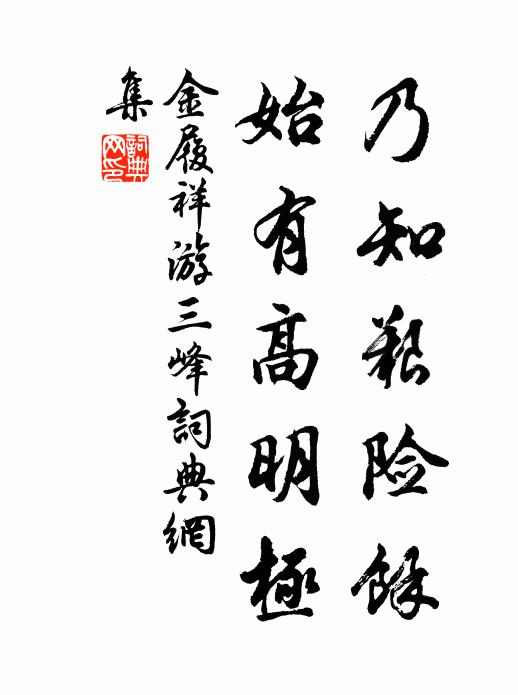 乃知艱险餘
始有高明極
金履祥游三峰詞典網
集
詞典网印